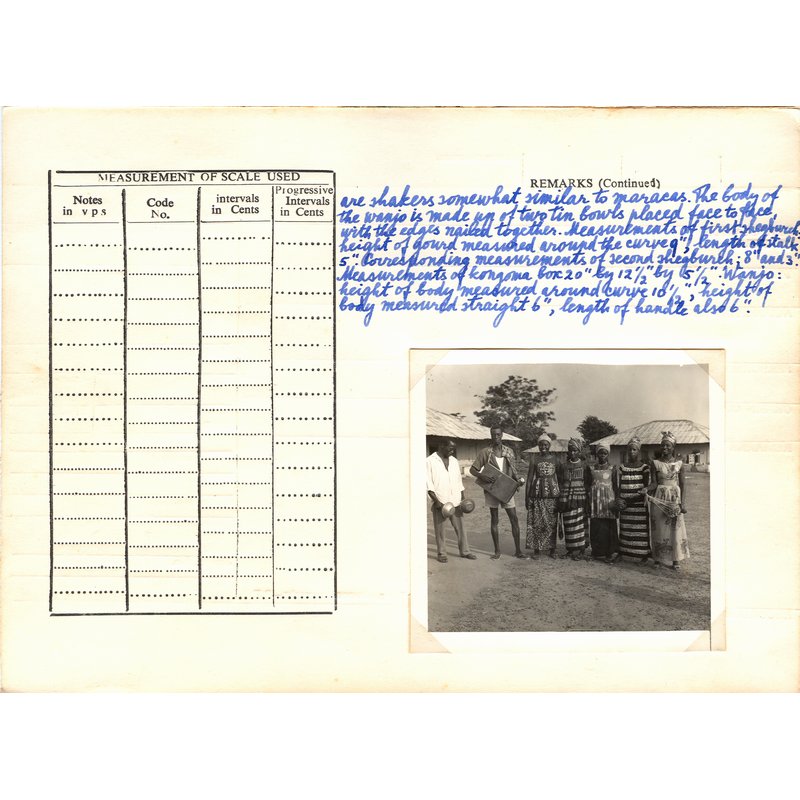 MEASUREMENT OF SCALE USED
Notes
in vps
Code
No.
intervals
in Cents
Progressive
Intervals
in Cents
REMARKS (Continued)
are shakers somewhat similar to maracas. The body of
the wanjo is made up of two tin bowls placed face to face
with the edges nailed together. Measurements of first shegbureh:
height of gourd measured around the curve 9", length of stalk
5". Corresponding measurements of second shegbureh; 8" and 3".
Measurements of kongoma box 20" by 12½" by 5½". Wanjo:
height of body measured around curve 10½", height of
body measured straight 6", length of handle also 6".